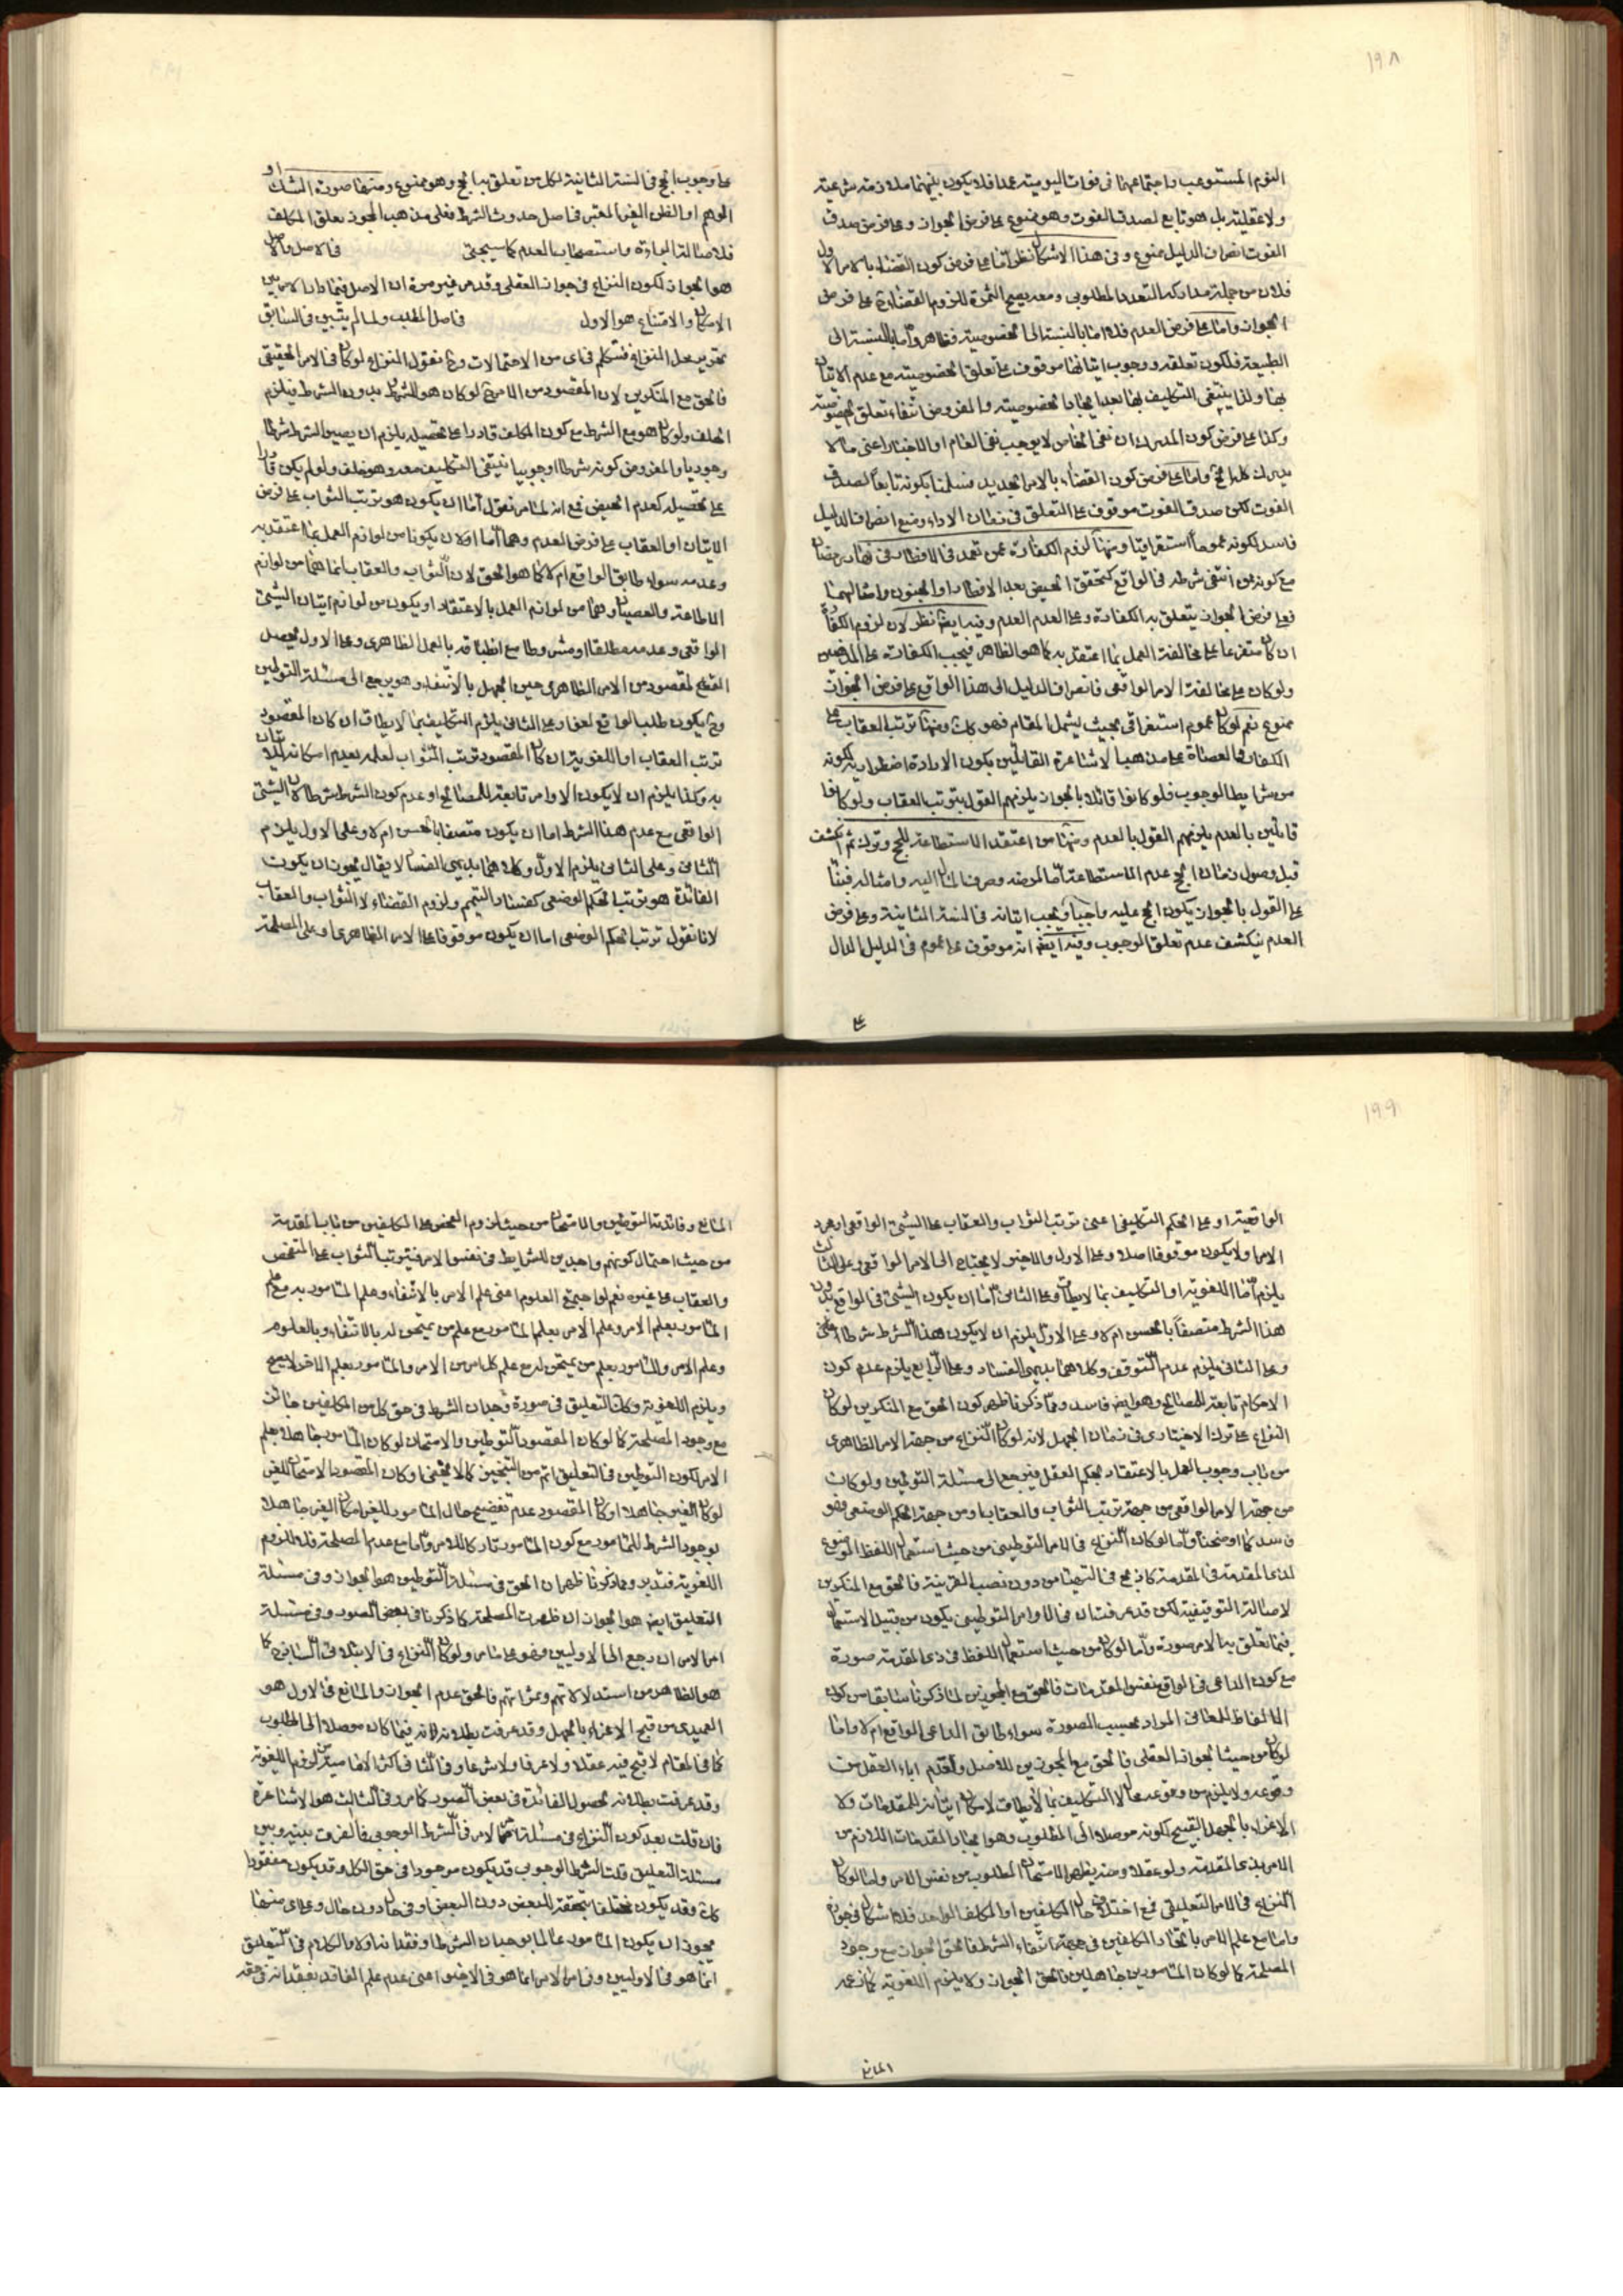 ١٩٨
النوم المستوعب واجتماعهما فى فوات اليومية عمدا فلا يكون بينهما ملازمة شرعية
ولا عقلية بل هو تابع لصدق الفوت وهو ممنوع على فرض الجواز وعلى فرض صدق
الفوت انصراف الدليل ممنوع وفى هذا الاشكال نظر اما على فرض كون القضاء بالامر الاول
فلان من جملة مداركه التعدد المطلوبى ومعه يصح الثمرة للزوم القضاء على فرض
الجواز واما على فرض العدم فلا اما بالنسبة الى الخصوصية فظاهر واما بالنسبة الى
الطبيعة فلكون تعلقه ووجوب اتيانها موقوف على تعلق الخصوصية مع عدم الاتيان
بها ولذا ينتفى التكليف بها بعد ايجاد الخصوصية والمفروض انتفاء تعلق الخصوصية
وكذا على فرض كون المدرك ان نفى الخاص لا يوجب نفى العام او الاخبار اعنى ما لا
يدرك كله الخ واما على فرض كون القضاء بالامر الجديد فسلمنا بكونه تابعا لصدق
الفوت لكن صدق الفوت موقوف على التعلق فى زمان الاداء ومنع انصراف الدليل
فاسد لكونه عموما استغراقيا ومنها لزوم الكفارة عمن تعمد فى الافطار فى نهار رمضان
مع كونه ممن انتفى شرطه فى الواقع كتحقق الحيض بعد الافطار او الجنون وامثالهما
فعلى فرض الجواز يتعلق به الكفارة وعلى العدم العدم وفيه ايضا نظر لان لزوم الكفارة
ان كان متفرعا على مخالفة العمل بما اعتقد به كما هو الظاهر فيجب الكفارة على المذهبين
ولو كان على مخالفة الامر الواقعى فانصراف الدليل الى هذا الواقع على فرض الجواز
ممنوع نعم لو كان عموم استغراقى بحيث يشمل المقام فهو كك ومنها ترتب العقاب على
الكفار والعصاة على مذهب الاشاعرة القائلين بكون الارادة اضطرارية لكونه
من شرايط الوجوب فلو كانوا قائلا بالجواز يلزمهم القول بترتب العقاب ولو كانوا
قائلين بالعدم يلزمهم القول بالعدم ومنها من اعتقد الاستطاعة للحج وترك ثم انكشف
قبل وصول زمان الحج عدم الاستطاعة اما لمرضه وصرف ماله اليه وامثاله فبناء
على القول بالجواز يكون الحج عليه واجبا ويجب اتيانه فى السنة الثانية وعلى فرض
العدم ينكشف عدم تعلق الوجوب وفيه ايضا انه موقوف على عموم فى الدليل الدال
على
على وجوب الحج فى السنة الثانية لكل من تعلق به الحج وهو ممنوع ومنها صورة الشك او
الوهم او الظن الغير المعتبر فى اصل حدوث الشرط فعلى مذهب المجوز تعلق المكلف
فلاصالة البراءة واستصحاب العدم كما سيجئ فالاصل والاصل
هو الجواز لكون النزاع فى جواز العقلى وقد مر غير مرة ان الاصل فيما دار الامر بين
الامكان والامتناع هو الاول فاصل المطلب ولما لم يتبين فى السابق
تحرير محل النزاع فنتكلم فى اى من الاحتمالات وح نقول النزاع لو كان فى الامر الحقيقى
فالحق مع المنكرين لان المقصود من الامر ح لو كان هو الشرط بدون الشرط فيلزم
الخلف ولو كان هو مع الشرط مع كون المكلف قادرا على تحصيله يلزم ان يصير الشرط شرطا
وجوديا والمفروض كونه شرطا وجوبيا ينتفى التكليف معه وهو خلف ولو لم يكن قادرا
على تحصيله كعدم الحيض فمع انه لما مر نقول اما ان يكون هو ترتب الثواب على فرض
الاتيان او العقاب على فرض العدم وهما اما اولان يكونا من لوازم العمل بما اعتقد به
وعدمه سواء طابق الواقع ام لا كما هو الحق لان الثواب والعقاب انما هما من لوازم
الاطاعة والعصيان وهما من لوازم العمل بالاعتقاد او يكون من لوازم اتيان الشيئ
الواقعى وعدمه مطلقا او مشروطا مع انطباقه بالعمل الظاهرى وعلى الاول يحصل
القطع لمقصود من الامر الظاهرى حين الجهل بالانتفاء وهو يرجع الى مسئلة التوطين
وح يكون طلب الواقع لغوا وعلى الثانى يلزم التكليف بما لا يطاق ان كان المقصود
ترتب العقاب او اللغوية ان كان المقصود ترتب الثواب لعلمه بعدم امكانه للاتيان
به وكذا يلزم ان لا يكون الاوامر تابعة للمصالح او عدم كون الشرط شرطا لان الشيئ
الواقعى مع عدم هذا الشرط اما ان يكون متصفا بالحسن ام لا وعلى الاول يلزم
الثانى وعلى الثانى يلزم الاول وكلاهما بديهى الفساد لا يقال يجوز ان يكون
الفائدة هو ترتب الحكم الوضعى كفساد التيمم ولزوم القضاء لا الثواب والعقاب
لانا نقول ترتب الحكم الوضعى اما ان يكون موقوفا على الامر الظاهرى او على المصلحة
١٩٩
الواقعية او على الحكم التكليفى اعنى ترتب الثواب والعقاب على الشيئ الواقعى او مجرد
الامر او لا يكون موقوفا اصلا وعلى الاول والاخير لا يحتاج الى الامر الواقعى وعلى الثالث
يلزم اما اللغوية او التكليف بما لا يطاق وعلى الثانى اما ان يكون الشيئ فى الواقع بدون
هذا الشرط متصفا بالحسن ام لا وعلى الاول يلزم ان لا يكون هذا الشرط شرطا
وعلى الثانى يلزم عدم التوقف وكلاهما بديهى الفساد وعلى الرابع يلزم عدم كون
الاحكام تابعة للمصالح وهو ايضا فاسد ومما ذكرنا ظهر كون الحق مع المنكرين لو كان
النزاع على ترك الاختيارى فى زمان الجهل لانه لو كان النزاع من جهة الامر الظاهرى
من باب وجوب العمل بالاعتقاد بحكم العقل فيرجع الى مسئلة التوطين ولو كان
من جهة الامر الواقعى من جهة ترتب الثواب والعقاب او من جهة الحكم الوضعى فهو
فاسد كما اوضحنا واما لو كان النزاع فى الامر التوطينى من حيث استعمال اللفظ الموضوع
لذى المقدمة فى المقدمة كاذبح فى التهيئا من دون نصب القرينة فالحق مع المنكرين
لاصالة التوقيفية لكن قد عرفت ان فى الاوامر التوطينى يكون من قبيل الاستعمال
فيما تعلق به الامر صورة واما لو كان من حيث استعمال اللفظ فى ذى المقدمة صورة
مع كون الداعى فى الواقع نفس المقدمات فالحق مع المجوزين لما ذكرنا سابقا من كون
الالفاظ للمعانى المراد بحسب الصورة سواء طابق الداعى الواقع ام لا واما
لو كان من حيث الجواز العقلى فالحق مع المجوزين للاصل ولعدم اباء العقل من
وقوعه ولا يلزم من وقوعه محال لا التكليف بما لا يطاق لامكان اتيانه للمقدمات ولا
الاغراء بالجهل القبيح لكونه موصلا الى المطلوب وهو ايجاد المقدمات اللازم من
الامر بذى المقدمة ولو عقلا ومنه يظهر الامتحان المطلوب من نفس الامر واما لو كان
النزاع فى الامر التعليقى فمع اختلاف حال المكلفين او المكلف الواحد فلا اشكال فى جوازه
واما مع علم الامر باتحاد المكلفين فى جهة انتفاء الشرط فالحق الجواز مع وجود
المصلحة كما لو كان المأمورين جاهلين فالحق الجواز ولا يلزم اللغوية
المانع
المانع وفائدته التوطين والامتحان من حيث لزوم الفحص على المكلفين من باب المقدمة
من حيث احتمال كونهم واجدين للشرايط فى نفس الامر فيترتب الثواب على المتفحص
والعقاب على غيره نعم لو اجتمع العلوم اعنى علم الامر بالانتفاء وعلم المأمور به مع علم
المأمور بعلم الامر وعلم الامر بعلم المأمور مع علم من يمتحن له بالانتفاء وبالعلوم
وعلم الامر والمأمور بعلم من يمتحن له مع علم كل من الامر والمأمور بعلم الاخر لا يصح
ويلزم اللغوية وكذا التعليق فى صورة وجدان الشرط فى حق كل من المكلفين جائز
مع وجود المصلحة كما لو كان المقصود التوطين والامتحان لو كان المأمور جاهلا بعلم
الامر لكون التوطين فى التعليق اتم من التنجيز كما لا يخفى او كان المقصود الامتحان للغير
لو كان الغير جاهلا او كان المقصود عدم تفضيح حال المأمور للغير لو كان الغير جاهلا
بوجود الشرط للمأمور مع كون المأمور تاركا للامر واما مع عدم المصلحة فلا للزوم
اللغوية فتدبر ومما ذكرنا ظهر ان الحق فى مسئلة التوطين هو الجواز وفى مسئلة
التعليق ايضا هو الجواز ان ظهرت المصلحة كما ذكرنا فى بعض الصور وفى مسئلة
امر الامر ان رجع الى الاوليين فهو على ما مر ولو كان النزاع فى الابتلاء فى الثانى كما
هو الظاهر من استدلالاتهم وثمراتهم فالحق عدم الجواز والمانع فى الاول هو
العميدى من قبح الاغراء بالجهل وقد عرفت بطلانه لانه فيما كان موصلا الى المطلوب
كما فى المقام لا قبح فيه عقلا ولا عرفا ولا شرعا وفى الثانى اكثر الامامية من لزوم اللغوية
وقد عرفت بطلانه لحصول الفائدة فى بعض الصور كما مر وفى الثالث هو الاشاعرة
فان قلت بعد كون النزاع فى مسئلة الامر فى الشرط الوجوبى فما الفرق بينه وبين
مسئلة التعليق قلت الشرط الوجوبى قد يكون موجودا فى حق الكل وقد يكون مفقودا
كك وقد يكون مختلفا بتحققه للبعض دون البعض او فى حال دون حال وعلى اى منها
يجوز ان يكون المأمور عالما بوجدان الشرط او فقدانه او لا والكلام فى التعليق
انما هو فى الاوليين وفى امر الامر انما هو فى الاخير اعنى عدم علم الفاقد بفقدانه فى حقه